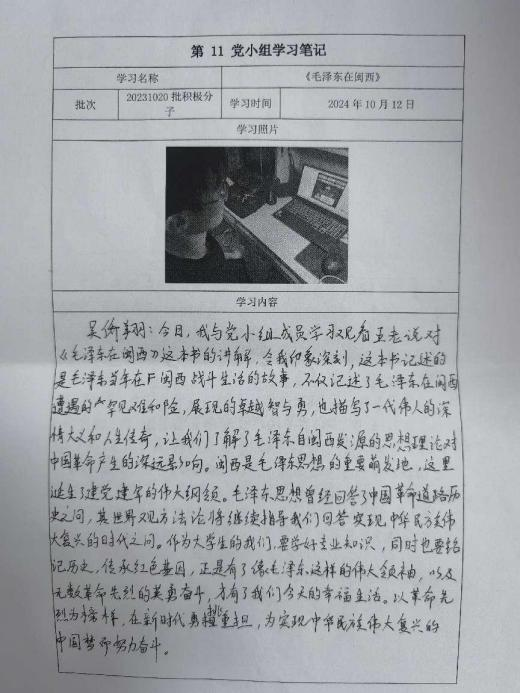 第 11 党小组学习笔记
学习名称 《毛泽东在闽西》
批次 20231020 批积极分子 学习时间 2024 年 10 月 12 日
学习照片
学习内容
今日,我与党小组成员学习观看王老说对
《毛泽东在闽西》这本书的讲解,令我印象深刻,这本书记述的
是毛泽东当年在闽西战斗生活的故事,不仅记述了毛泽东在闽西
遭遇的罕见艰难和险,展现的卓越智与勇,也描写了一代伟人的深
情大义和人生传奇,让我们了解了毛泽东自闽西发源的思想理论对
中国革命产生的深远影响。闽西是毛泽东思想的重要萌发地,这里
诞生了建党建军的伟大纲领。毛泽东思想曾经回答了中国革命道路历
史之问,其世界观方法论将继续指导我们回答实现中华民族伟
大复兴的时代之问。作为大学生的我们,要学好专业知识,同时也要铭
记历史,传承红色基因,正是有了像毛泽东这样的伟大领袖,以及
无数革命先烈的英勇奋斗,才有了我们今天的幸福生活。以革命先
烈为榜样,在新时代勇挑重担,为实现中华民族伟大复兴的
中国梦而努力奋斗。